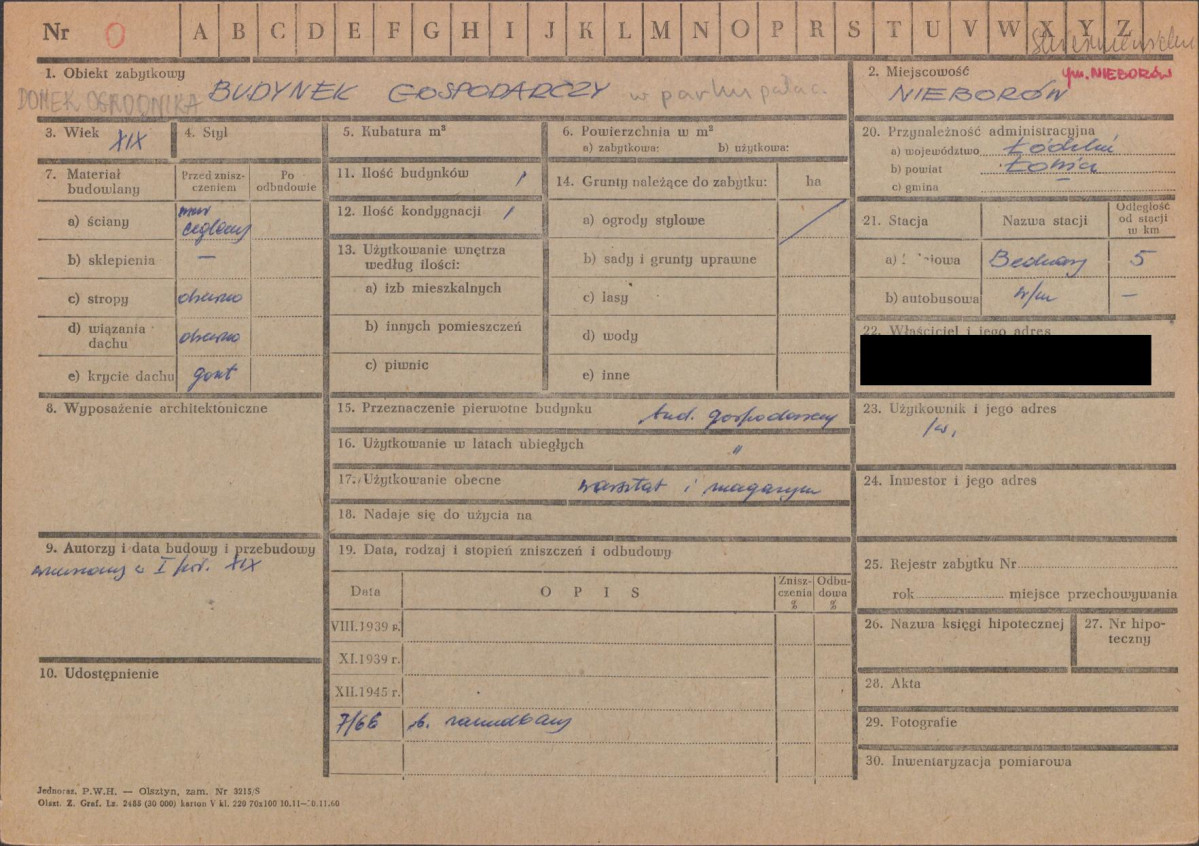 Nr 0 A B C D E F G H I J K L M N O P R S T U V W X Y Z
1. Obiekt zabytkowy
DOMEK OGRODNIKA BUDYNEK GOSPODARCZY w parku pałac.
2. Miejscowość gm. NIEBORÓW
NIEBORÓW
3. Wiek XIX
4. Styl
5. Kubatura m³
6. Powierzchnia w m²
a) zabytkowa: b) użytkowa:
20. Przynależność administracyjna
a) województwo Łódzkie
b) powiat Łowicz
c) gmina —
7. Materiał budowlany
Przed zniszczeniem
Po odbudowie
a) ściany mur ceglany
b) sklepienia —
c) stropy drewno
d) wiązania dachu drewno
e) krycie dachu gont
11. Ilość budynków 1
12. Ilość kondygnacji 1
13. Użytkowanie wnętrza
według ilości:
a) izb mieszkalnych
b) innych pomieszczeń
c) piwnic
14. Grunty należące do zabytku: ha
a) ogrody stylowe
b) sady i grunty uprawne
c) lasy
d) wody
e) inne
21. Stacja
Nazwa stacji
Odległość
od stacji
w km
a) Bednary 5
b) autobusowa w/m —
22. Właściciel i jego adres
8. Wyposażenie architektoniczne
15. Przeznaczenie pierwotne budynku bud. gospodarczy
16. Użytkowanie w latach ubiegłych "
17. Użytkowanie obecne warsztat i magazyn
18. Nadaje się do użycia na
23. Użytkownik i jego adres
24. Inwestor i jego adres
9. Autorzy i data budowy i przebudowy
wzniesiony w I poł. XIX
19. Data, rodzaj i stopień zniszczeń i odbudowy
Data OPIS
Znisz-
czenia
%
Odbu-
dowa
%
VIII.1939 r.
XI.1939 r.
XII.1945 r.
7/66 b. zaniedbany
25. Rejestr zabytku Nr
rok miejsce przechowywania
26. Nazwa księgi hipotecznej
27. Nr hipo-
teczny
10. Udostępnienie
28. Akta
29. Fotografie
30. Inwentaryzacja pomiarowa
Jednoraz. P.W.H. — Olsztyn, zam. Nr 3215/S
Olszt. Z. Graf. Lz. 2455 (30 000) karton V kl. 220 70x100 10.11—